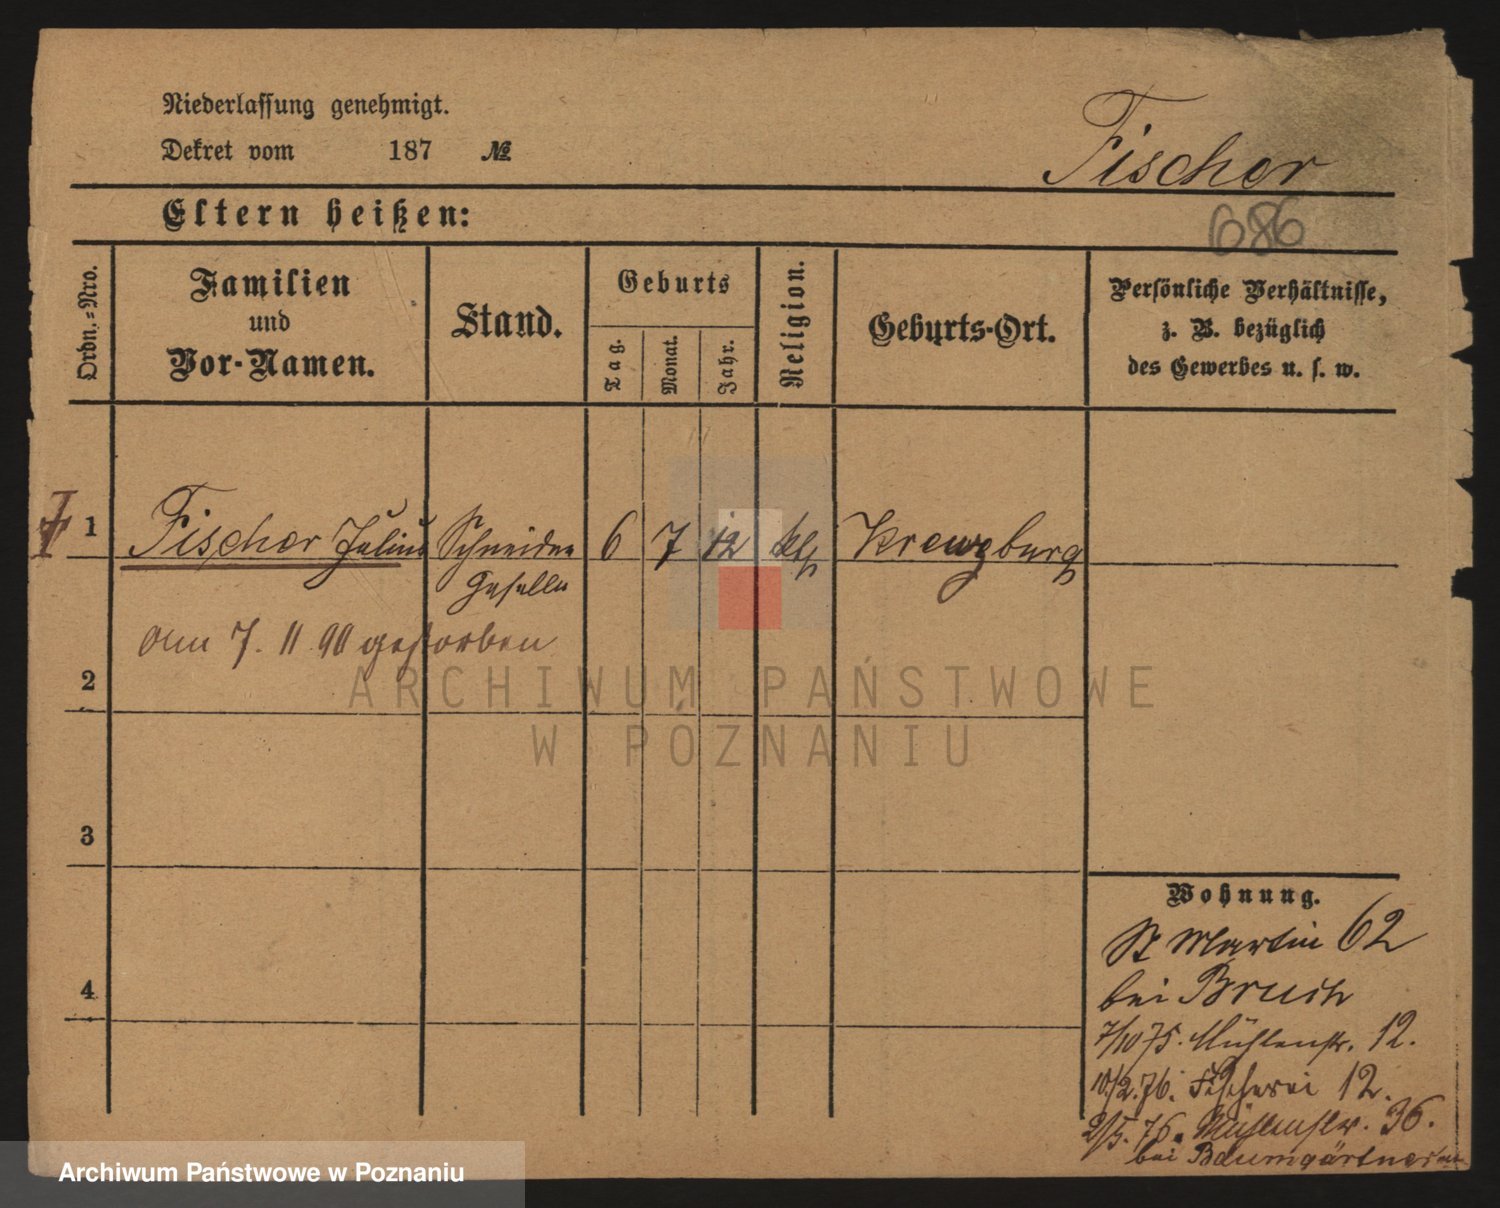 Niederlassung genehmigt.
Dekret vom 187 №
Fischer
Eltern heißen:
686
Ordn.-Nro.
Familien
und
Vor-Namen.
Stand.
Geburts
Tag.
Monat.
Jahr.
Religion.
Geburts-Ort.
Persönliche Verhältnisse,
z. B. bezüglich
des Gewerbes u. s. w.
1 Fischer Julius Schneider 6 7 12 kth Kreuzburg
Geselle
am 7. 11 90 gestorben
2
3
4
Wohnung.
St Martin 62
bei Bruch
7/10 75. Mühlenstr. 12.
10/2. 76. Fischerei 12.
2/5. 76. Mühlenstr. 36.
bei Baumgärtner
ARCHIWUM PAŃSTWOWE
W POZNANIU
Archiwum Państwowe w Poznaniu